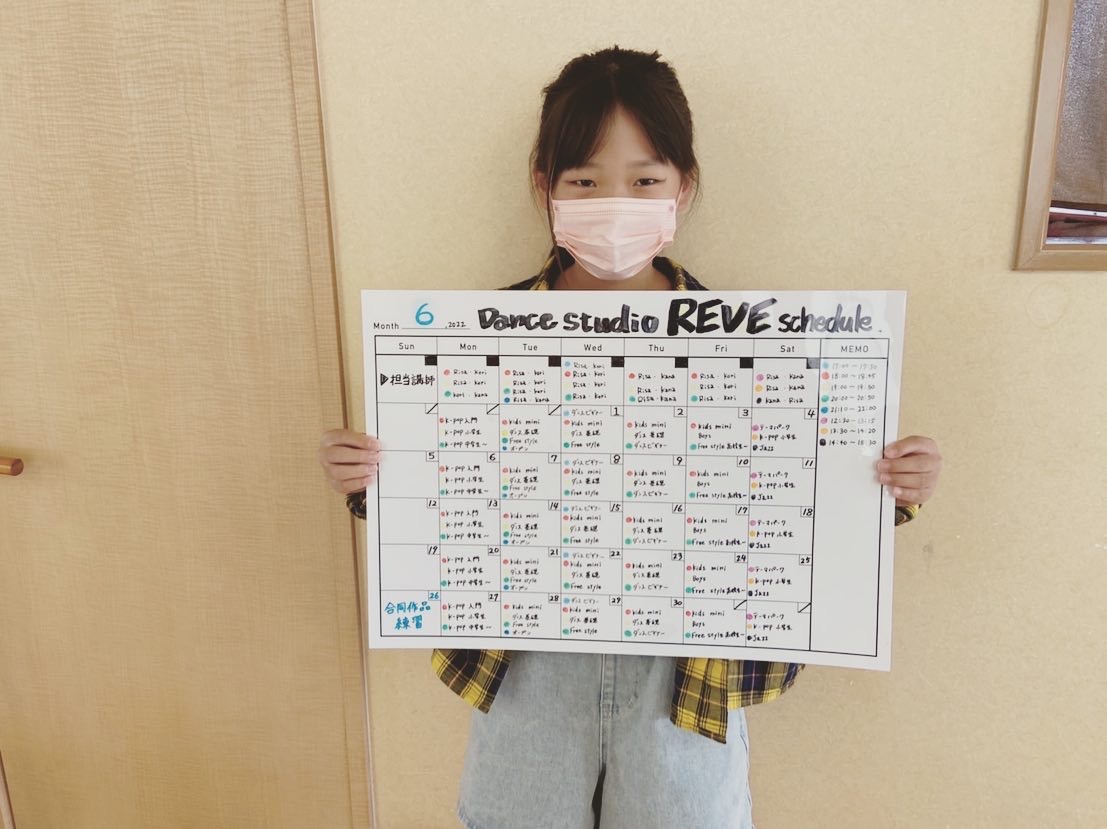 Month 6 , 2022 Dance studio REVE schedule.
Sun Mon Tue Wed Thu Fri Sat MEMO
▷担当講師
Risa・kori
Risa・kori
kori・kana
Risa・kori
Risa・kori
Risa・kori
Risa・kana
Risa・kori
Risa・kori
Risa・kori
Risa・kori
Risa・kana
Risa・kana
Risa・kana
Risa・kori
Risa・kori
Risa・kori
Risa・kana
Risa・kana
kana・Risa
17:00〜17:50
18:00〜18:45
19:00〜19:50
20:00〜20:50
21:10〜22:00
12:30〜13:15
13:30〜14:20
14:40〜15:30
K-pop 入門
K-pop 小学生
K-pop 中学生〜
kids mini
ダンス基礎
Free style
オープン
1
ダンスビギナー
kids mini
ダンス基礎
Free style
2
kids mini
ダンス基礎
ダンスビギナー
3
kids mini
Boys
Free style 高校生〜
4
テーマパーク
K-pop 小学生
Jazz
5
6
K-pop 入門
K-pop 小学生
K-pop 中学生〜
7
kids mini
ダンス基礎
Free style
オープン
8
ダンスビギナー
kids mini
ダンス基礎
Free style
9
kids mini
ダンス基礎
ダンスビギナー
10
kids mini
Boys
Free style 高校生〜
11
テーマパーク
K-pop 小学生
Jazz
12
13
K-pop 入門
K-pop 小学生
K-pop 中学生〜
14
kids mini
ダンス基礎
Free style
オープン
15
ダンスビギナー
kids mini
ダンス基礎
Free style
16
kids mini
ダンス基礎
ダンスビギナー
17
kids mini
Boys
Free style 高校生〜
18
テーマパーク
K-pop 小学生
Jazz
19
20
K-pop 入門
K-pop 小学生
K-pop 中学生〜
21
kids mini
ダンス基礎
Free style
オープン
22
ダンスビギナー
kids mini
ダンス基礎
Free style
23
kids mini
ダンス基礎
ダンスビギナー
24
kids mini
Boys
Free style 高校生〜
25
テーマパーク
K-pop 小学生
Jazz
26
合同作品
練習
27
K-pop 入門
K-pop 小学生
K-pop 中学生〜
28
kids mini
ダンス基礎
Free style
オープン
29
ダンスビギナー
kids mini
ダンス基礎
Free style
30
kids mini
ダンス基礎
ダンスビギナー
kids mini
Boys
Free style 高校生〜
テーマパーク
K-pop 小学生
Jazz